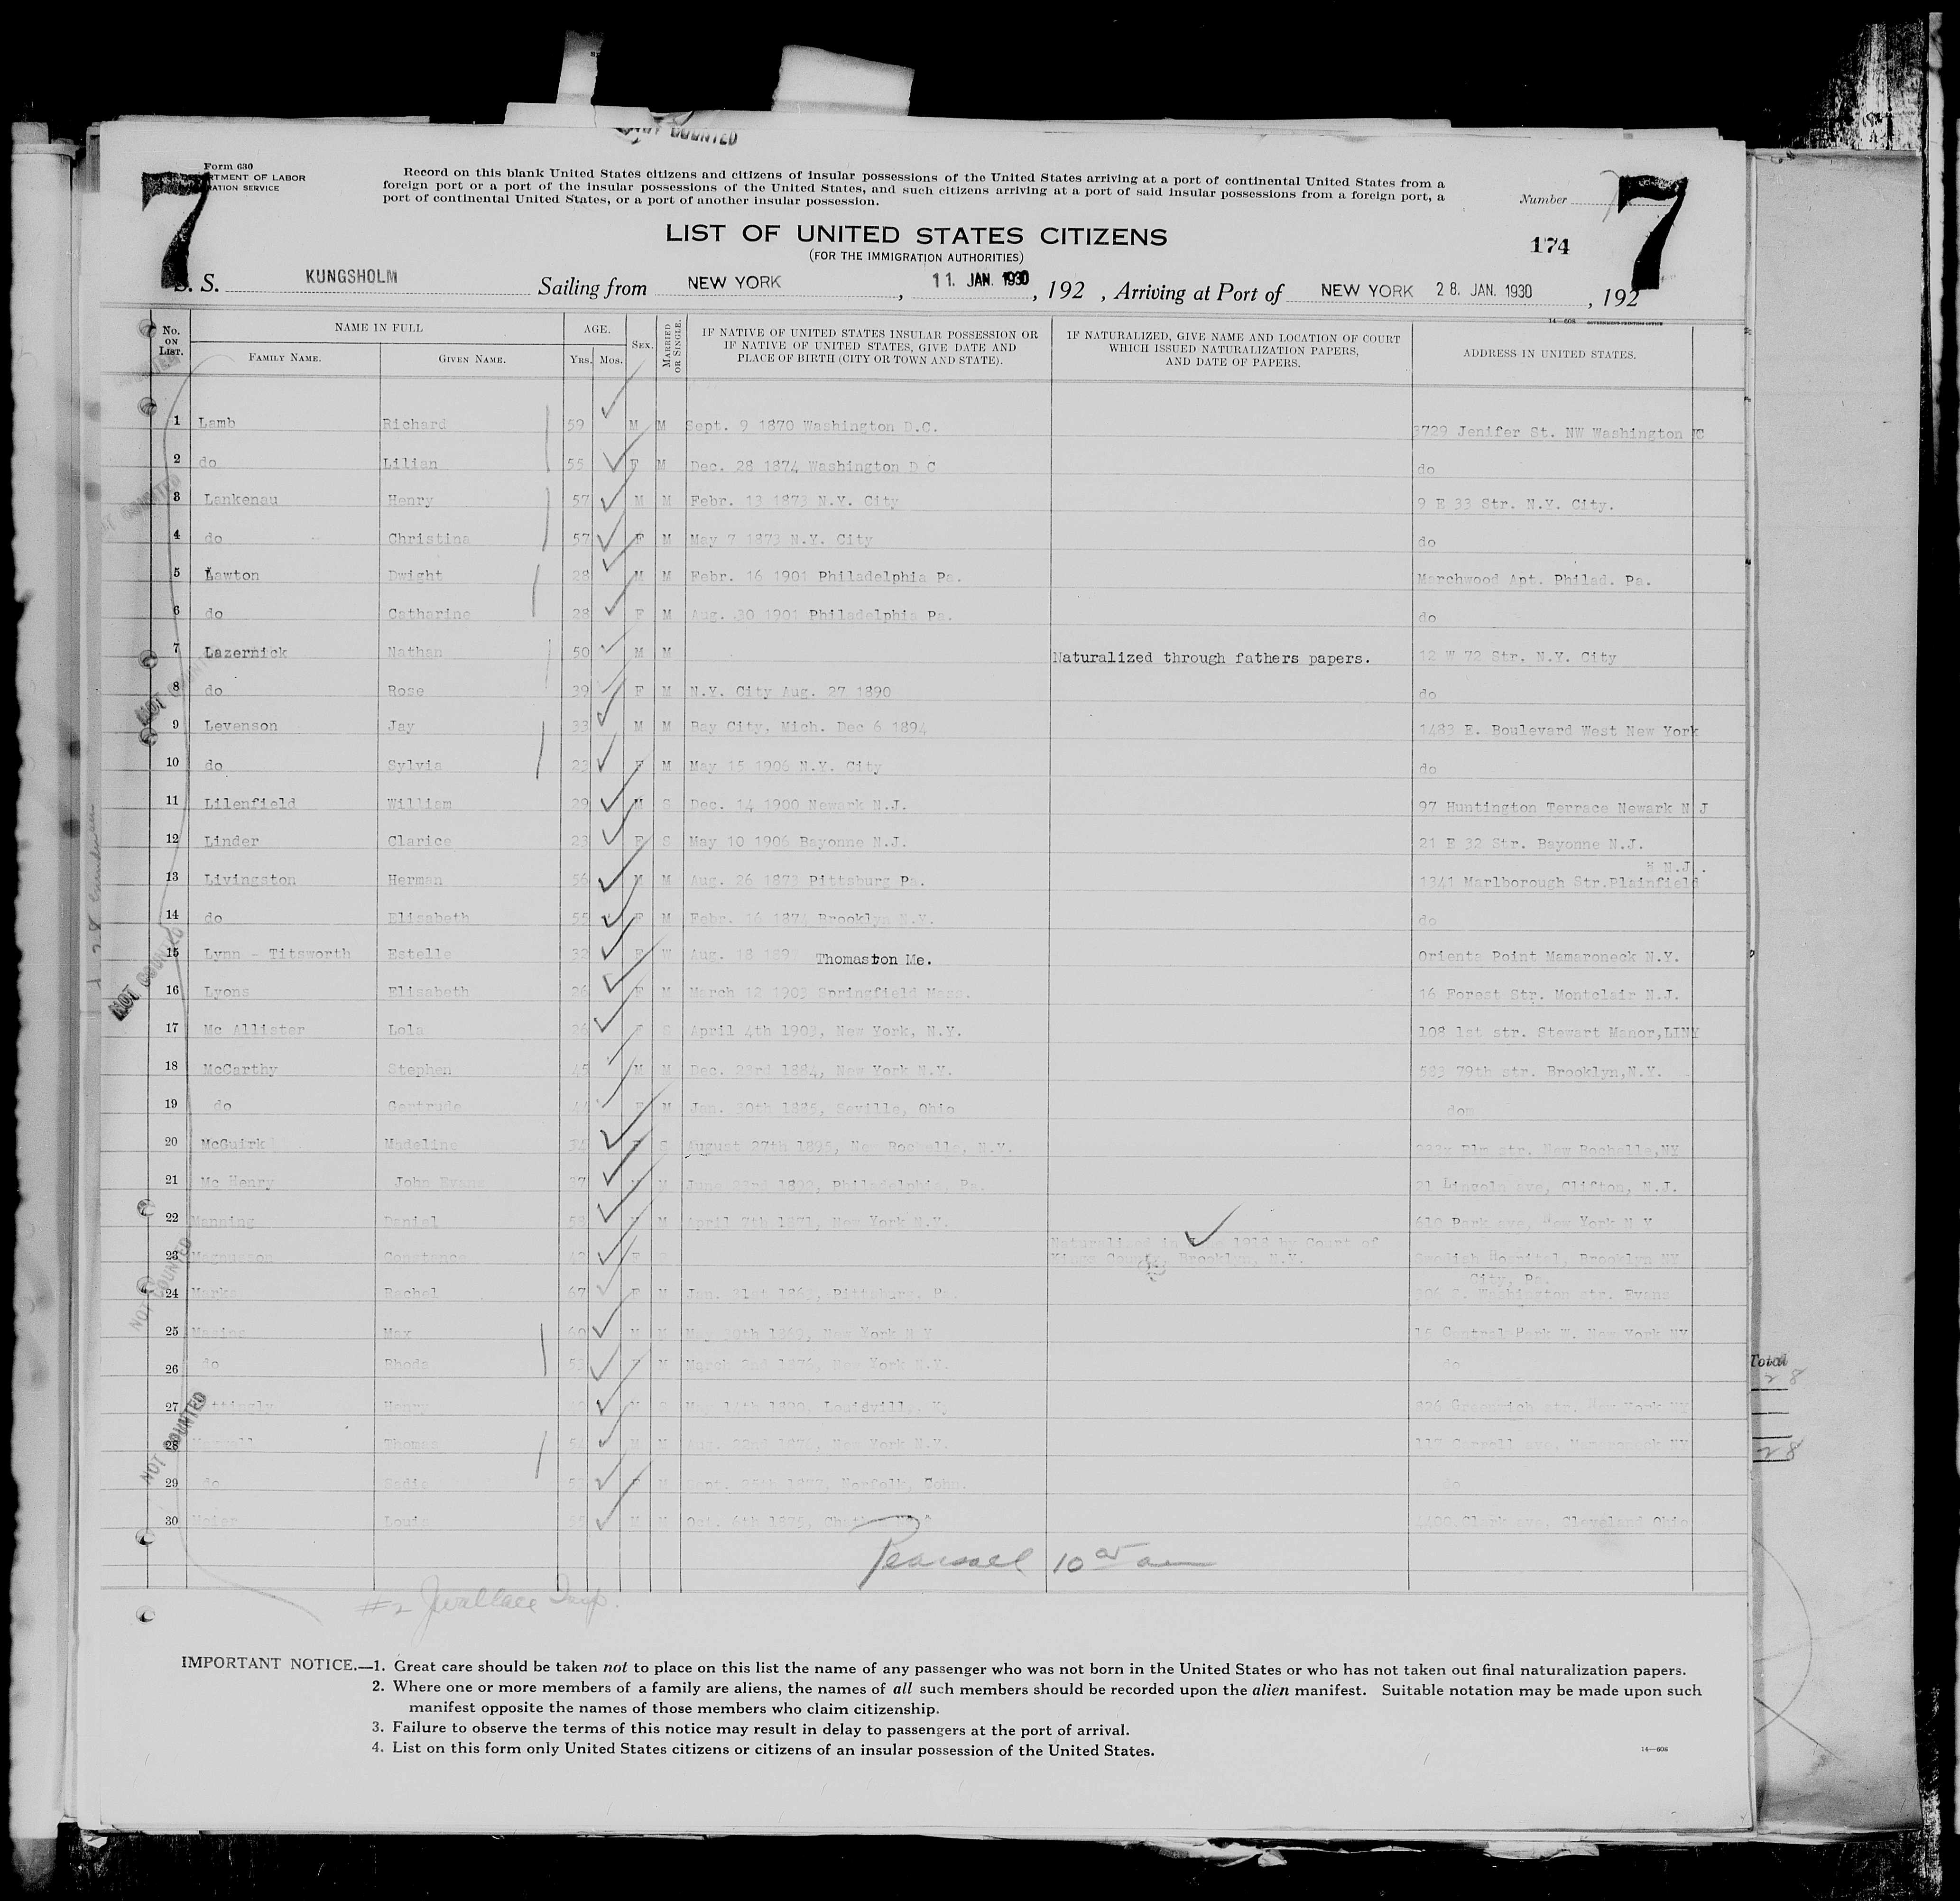 NOT COUNTED
Form 630
RTMENT OF LABOR
RATION SERVICE
7
Record on this blank United States citizens and citizens of insular possessions of the United States arriving at a port of continental United States from a
foreign port or a port of the insular possessions of the United States, and such citizens arriving at a port of said insular possessions from a foreign port, a
port of continental United States, or a port of another insular possession.
Number
7
LIST OF UNITED STATES CITIZENS
(FOR THE IMMIGRATION AUTHORITIES)
174
S. S. KUNGSHOLM Sailing from NEW YORK, 11. JAN. 1930, 192 , Arriving at Port of NEW YORK 28. JAN. 1930, 192
14—608 GOVERNMENT PRINTING OFFICE
No. ON LIST. NAME IN FULL AGE. SEX. MARRIED OR SINGLE. IF NATIVE OF UNITED STATES INSULAR POSSESSION OR IF NATIVE OF UNITED STATES, GIVE DATE AND PLACE OF BIRTH (CITY OR TOWN AND STATE). IF NATURALIZED, GIVE NAME AND LOCATION OF COURT WHICH ISSUED NATURALIZATION PAPERS, AND DATE OF PAPERS. ADDRESS IN UNITED STATES.
FAMILY NAME. GIVEN NAME. YRS. MOS.
1 Lamb Richard 59 M M Sept. 9 1870 Washington D.C. 3729 Jenifer St. NW Washington DC
2 do Lilian 55 F M Dec. 28 1874 Washington D C do
3 Lankenau Henry 57 M M Febr. 13 1873 N.Y. City 9 E 33 Str. N.Y. City.
4 do Christina 57 F M May 7 1873 N.Y. City do
5 Lawton Dwight 28 M M Febr. 16 1901 Philadelphia Pa. Marchwood Apt. Philad. Pa.
6 do Catharine 28 F M Aug. 30 1901 Philadelphia Pa. do
7 Lazernick Nathan 50 M M Naturalized through fathers papers. 12 W 72 Str. N.Y. City
8 do Rose 39 F M N.Y. City Aug. 27 1890 do
9 Levenson Jay 33 M M Bay City, Mich. Dec 6 1894 1483 E. Boulevard West New York
10 do Sylvia 23 F M May 15 1906 N.Y. City do
11 Lilenfield William 29 M S Dec. 14 1900 Newark N.J. 97 Huntington Terrace Newark N J
12 Linder Clarice 23 F S May 10 1906 Bayonne N.J. 21 E 32 Str. Bayonne N.J.
N.J.
13 Livingston Herman 56 M M Aug. 26 1873 Pittsburg Pa. 1341 Marlborough Str.Plainfield
14 do Elisabeth 55 F M Febr. 16 1874 Brooklyn N.Y. do
15 Lynn - Titsworth Estelle 32 F W Aug. 18 189 Thomaston Me. Orienta Point Mamaroneck N.Y.
16 Lyons Elisabeth 26 F M March 12 1903 Springfield Mass. 16 Forest Str. Montclair N.J.
17 Mc Allister Lola 26 F S April 4th 1903, New York, N.Y. 108 1st str. Stewart Manor,LINY
18 McCarthy Stephen 45 M M Dec. 23rd 1884, New York N.Y. 583 79th str. Brooklyn,N.Y.
19 do Gertrude 44 F M Jan. 30th 1885, Seville, Ohio dom
20 McGuirk Madeline 34 S August 27th 1895, New Rochelle, N.Y. Elm str. New Rochelle,NY
21 Mc Henry John Evans 37 M June 23rd 1892, Philadelphia, Pa. 21 Lincoln ave, Clifton, N.J.
22 Manning Daniel 58 M M April 7th 1871, New York N.Y. 610 Park ave, New York N Y
Naturalized in 1918 by Court of
23 Magnusson Constance 42 F Kings County, Brooklyn, N.Y. Swedish Hospital, Brooklyn NY
City, Pa.
24 Marks Rachel 67 F M Jan. 21st 1863, Pittsburg, Pa. Washington str. Evans
25 Max 60 M M May 1869, New York N Y 15 Central Park W. New York NY
26 do Rhoda 53 F M March 2nd 1876, New York N.Y. do
27 Henry M S May 14th 1890, Louisville, Ky 826 Greenwich str. New York NY
28 Thomas M M Aug. 22nd New York N.Y. 117 Carroll ave, Mamaroneck NY
29 do Sadie 52 F M Sept. 25th 1877, Norfolk, Conn. do
30 Meier Louis M M Oct. 6th 1875, Clark ave, Cleveland Ohio
Pearsall 10 05 am
#2 J Wallace Insp.
NOT COUNTED
NOT COUNTED
NOT COUNTED
NOT COUNTED
Total
28
28
IMPORTANT NOTICE.—1. Great care should be taken not to place on this list the name of any passenger who was not born in the United States or who has not taken out final naturalization papers.
2. Where one or more members of a family are aliens, the names of all such members should be recorded upon the alien manifest. Suitable notation may be made upon such
manifest opposite the names of those members who claim citizenship.
3. Failure to observe the terms of this notice may result in delay to passengers at the port of arrival.
4. List on this form only United States citizens or citizens of an insular possession of the United States.
14—608